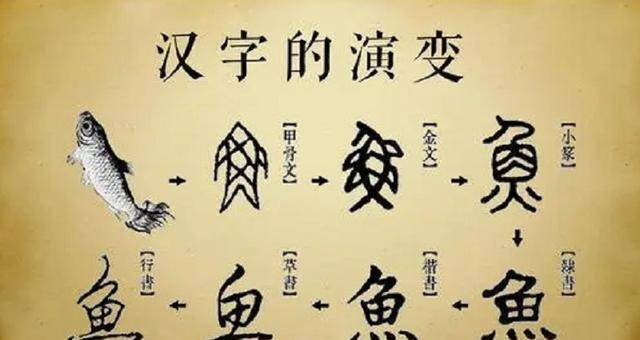 汉字的演变
【甲骨文】
【金文】
【小篆】
【隸書】
魚
【楷書】
魚
【草書】
【行書】
魚